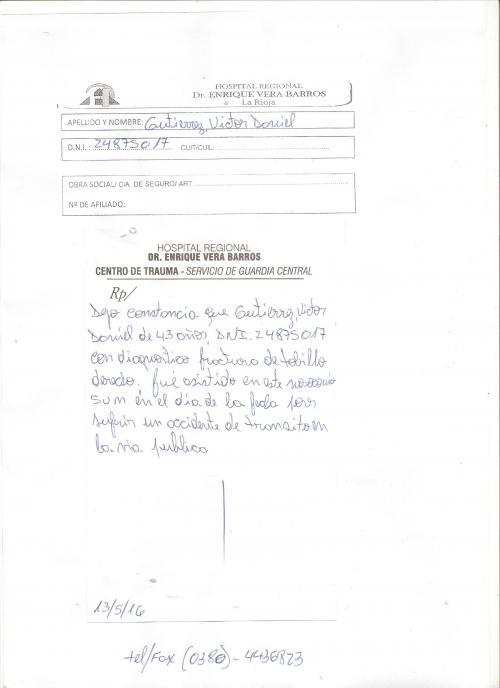 HOSPITAL REGIONAL
Dr. ENRIQUE VERA BARROS
La Rioja
APELLIDO Y NOMBRE: Gutierrez, Victor Daniel
D.N.I.: 24875017 CUIT/CUIL:
OBRA SOCIAL/ CIA. DE SEGURO/ ART
Nº DE AFILIADO:
HOSPITAL REGIONAL
DR. ENRIQUE VERA BARROS
CENTRO DE TRAUMA - SERVICIO DE GUARDIA CENTRAL
Rp/
Dejo constancia que Gutierrez, Victor
Daniel de 43 años, DNI. 24875017
con diagnostico fractura de tobillo
derecho. fué asistido en este nosocomio
en el día de la fecha por
sufrir un accidente de transito en
la via publica
13/5/16
tel/Fax (0380) - 4436873